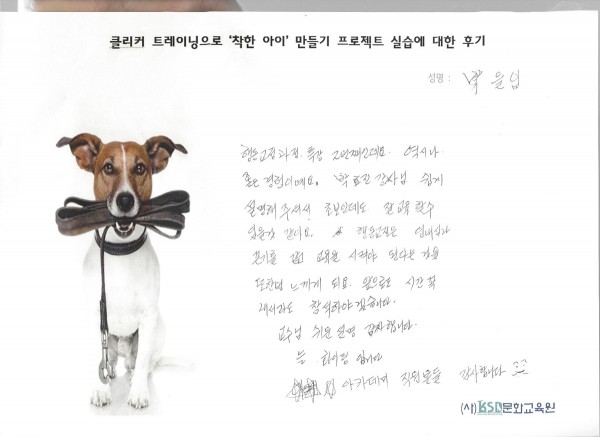 클리커 트레이닝으로 '착한 아이' 만들기 프로젝트 실습에 대한 후기
성명 : 박 을섭
행동교정과정 특강 2번째인데요. 역시나
좋은 경험이예요. 박효진 강사님 쉽게
설명해 주셔서 초보인데도 잘 교육 할수
있을것 같네요. 행동교정은 인내심과
끈기를 교육을 시켜야 된다는 것을
또한번 느끼게 되요. 앞으로도 시간 꼭
내서라도 참석하야겠습니다.
교수님 쉬운 설명 감사합니다.
늘 화이팅 입니다
아카데미 직원분들 감사합니다
(사)KSD문화교육원